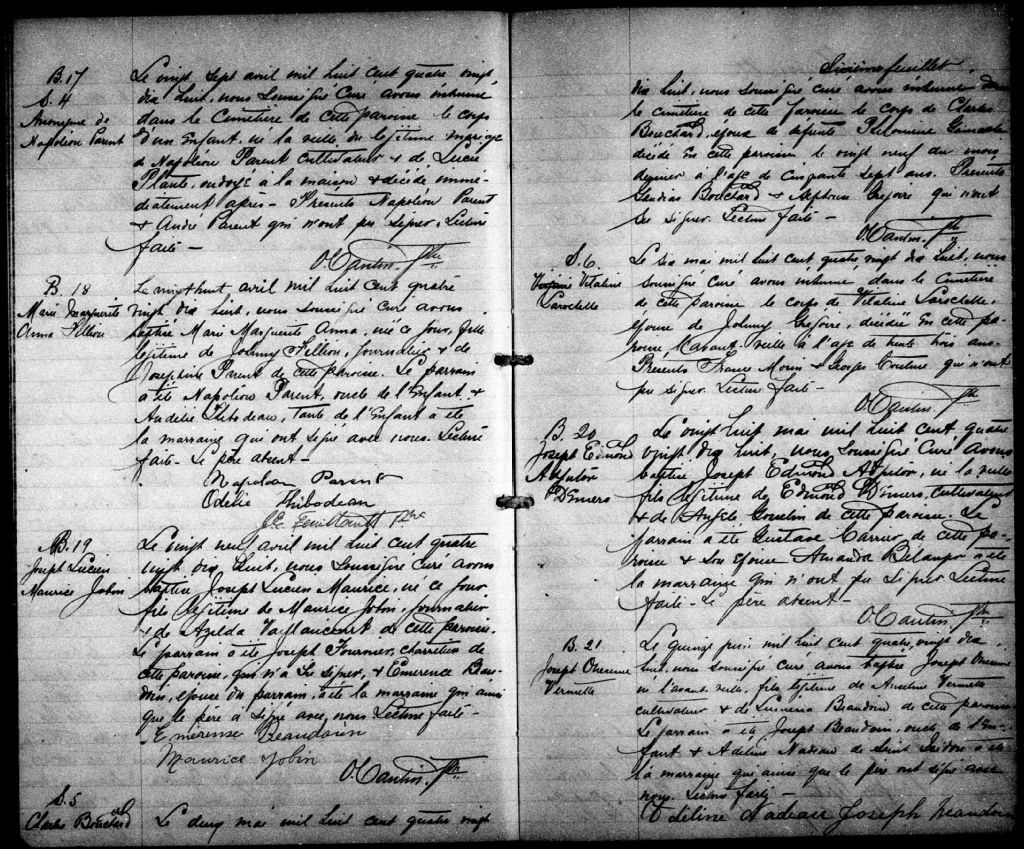 B.17
S.4
Anonyme de
Napoléon Parent
Le vingt sept avril mil huit cent quatre vingt
dix huit, nous soussigné curé avons inhumé
dans le cimetière de cette paroisse le corps
d'un Enfant, né la veille du légitime mariage
de Napoléon Parent cultivateur & de Lucie
Plante, ondoyé à la maison & décédé immé-
diatement après - Présents Napoléon Parent
& André Parent qui n'ont pu signer. Lecture
faite -
O. Cantin. Ptre
B. 18
Marie Marguerite
Anna Fillion
Le vingt huit avril mil huit cent quatre
vingt dix huit, nous soussigné curé avons
baptisé Marie Marguerite Anna, née ce jour, fille
légitime de Johnny Fillion, journalier & de
Josephine Parent de cette paroisse. Le parrain
a été Napoléon Parent, oncle de l'Enfant &
Audélie Thibodeau, tante de l'Enfant a été
la marraine qui ont signé avec nous. Lecture
faite - Le père absent -
Napoleon Parent
Odelie Thibodeau
Ptre
B. 19
Joseph Lucien
Maurice Jobin
Le vingt neuf avril mil huit cent quatre
vingt dix huit, nous soussigné curé avons
baptisé Joseph Lucien Maurice, né ce jour
fils légitime de Maurice Jobin, journalier
& de Azilda Vaillancourt de cette paroisse.
Le parrain a été Joseph Fournier, charretier de
cette paroisse, qui n'a su signer, & Emerence Beau-
doin, épouse du parrain a été la marraine qui ainsi
que le père a signé avec nous Lecture faite -
Emerense Beaudoin
Maurice Jobin
O. Cantin. Ptre
S.5
Charles Bouchard
Le deux mai mil huit cent quatre vingt
Sixième feuillet.
dix huit, nous soussigné curé avons inhumé dans
le cimetière de cette paroisse le corps de Charles
Bouchard, époux de défunte Philomène
décédé en cette paroisse le vingt neuf du mois
dernier à l'age de cinquante sept ans. Présents
Bouchard & Alphonse Grégoire qui n'ont
su signer. Lecture faite -
O. Cantin. Ptre
S. 6
Vitaline
Larochelle
Le six mai mil huit cent quatre vingt dix huit, nous
soussigné curé avons inhumé dans le cimetière
de cette paroisse le corps de Vitaline Larochelle
épouse de Johnny Grégoire, décédée en cette pa-
roisse, l'avant veille à l'age de trente trois ans.
Présents France Morin & George Couture qui n'ont
pu signer. Lecture faite -
O. Cantin. Ptre
B. 20
Joseph Edmond
Adjutor
Demers
Le vingt huit mai mil huit cent quatre
vingt dix huit, nous soussigné curé avons
baptisé Joseph Edmond Adjutor, né la veille
fils légitime de Edmond Demers, cultivateur
& de Angèle Gosselin de cette paroisse. Le
parrain a été Gustave Carrier de cette pa-
roisse & son épouse Amanda Bélanger a été
la marraine qui n'ont pu signer Lecture
faite - Le père absent -
O. Cantin. Ptre
B. 21
Joseph
Vermette
Le quinze juin mil huit cent quatre vingt dix
huit, nous soussigné curé avons baptisé Joseph
né l'avant veille, fils légitime de Anselme Vermette
cultivateur & de Beaudoin de cette paroisse
Le parrain a été Joseph Beaudoin, oncle de l'En-
fant & Adeline Nadeau de Saint Isidore a été
la marraine qui ainsi que le père ont signé avec
nous. Lecture faite -
Edeline Nadeau Joseph